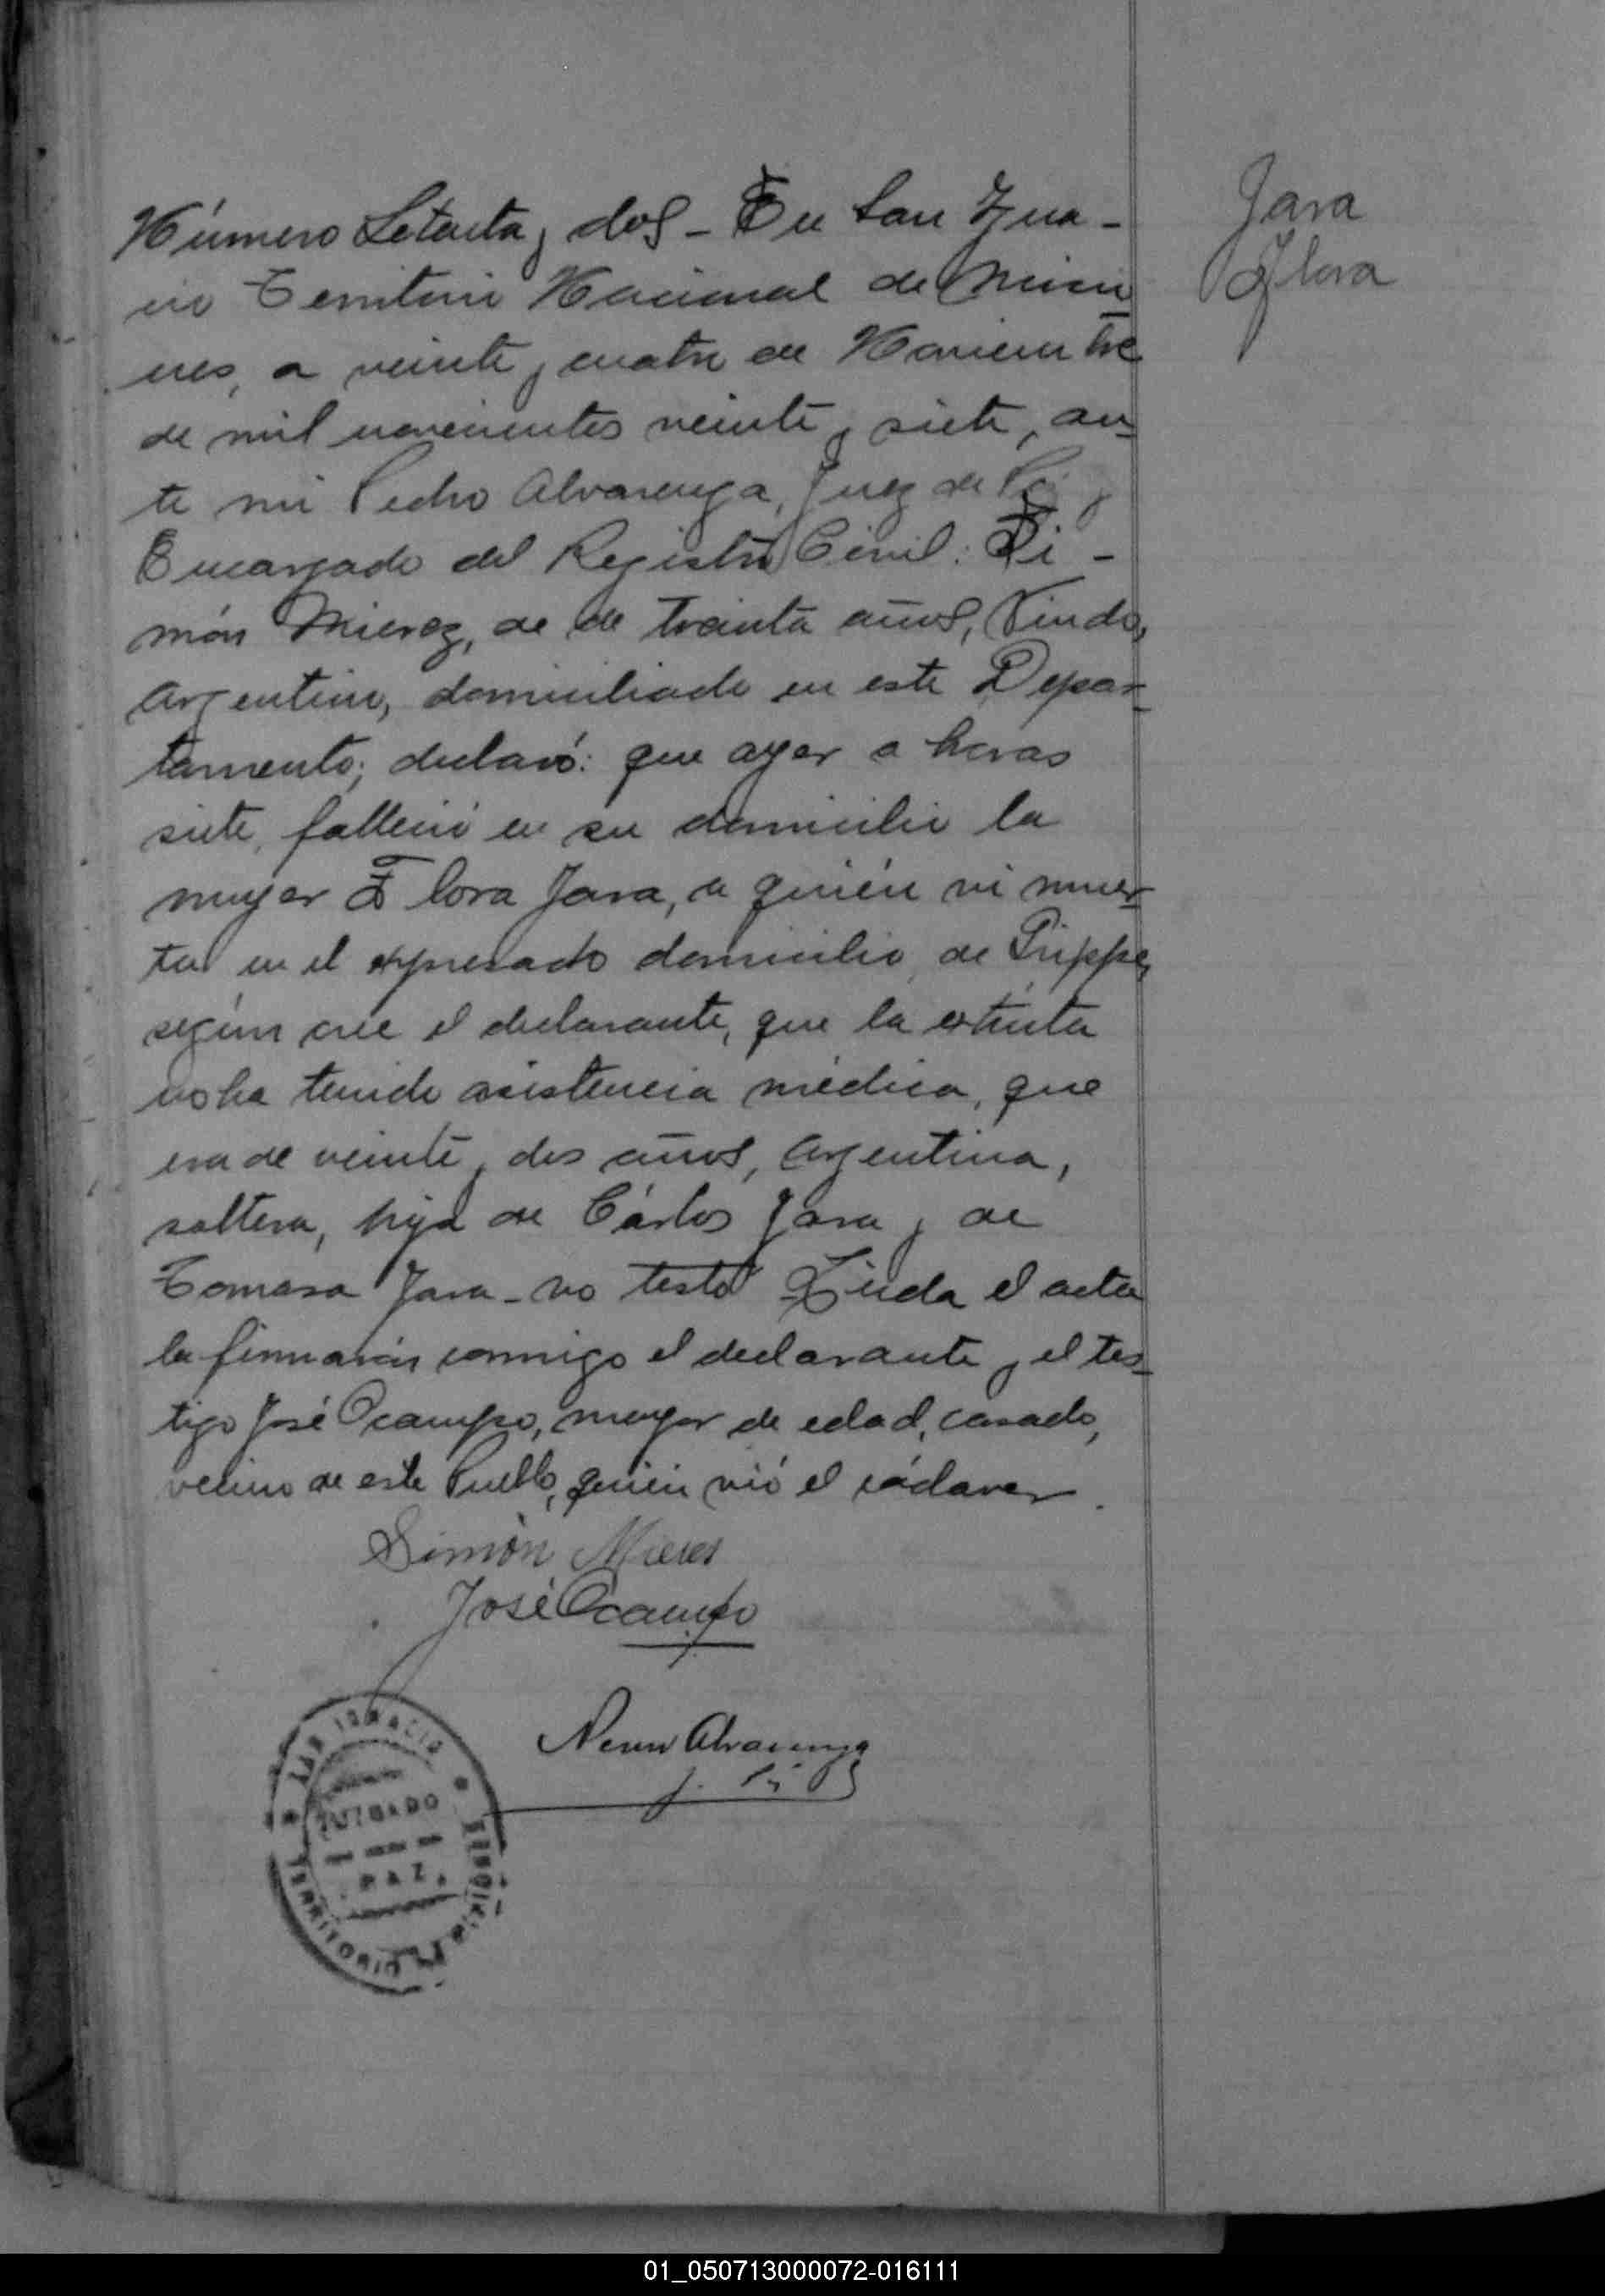 Número Setenta y dos - En San Igna-
cio Territorio Nacional de Misio
nes, a veinte y cuatro de Noviembre
de mil novecientos veinte y siete, an-
te mi Pedro Alvarenga, Juez de Paz y
Encargado del Registro Civil: Si-
món Mierez, de de treinta años, Viudo,
argentino, domiciliado en este Depar-
tamento; declaró: que ayer a horas
siete, falleció en su domicilio la
mujer Flora Jara, a quién vi muer-
ta en el expresado domicilio, de Grippe,
según cree el declarante, que la extinta
no ha tenido asistencia médica, que
era de veinte y dos años, argentina,
soltera, hija de Cárlos Jara y de
Tomasa Jara - no testó Leida el acta
la firmarón conmigo el declarante y el tes-
tigo José Ocampo, mayor de edad, casado,
vecino de este Pueblo, quién vió el cádaver.
Jara
Flora
Simón Mieres
José Ocampo
Alvarenga
SAN IGNACIO
JUZGADO
PAZ
TERRITORIO
01_050713000072-016111